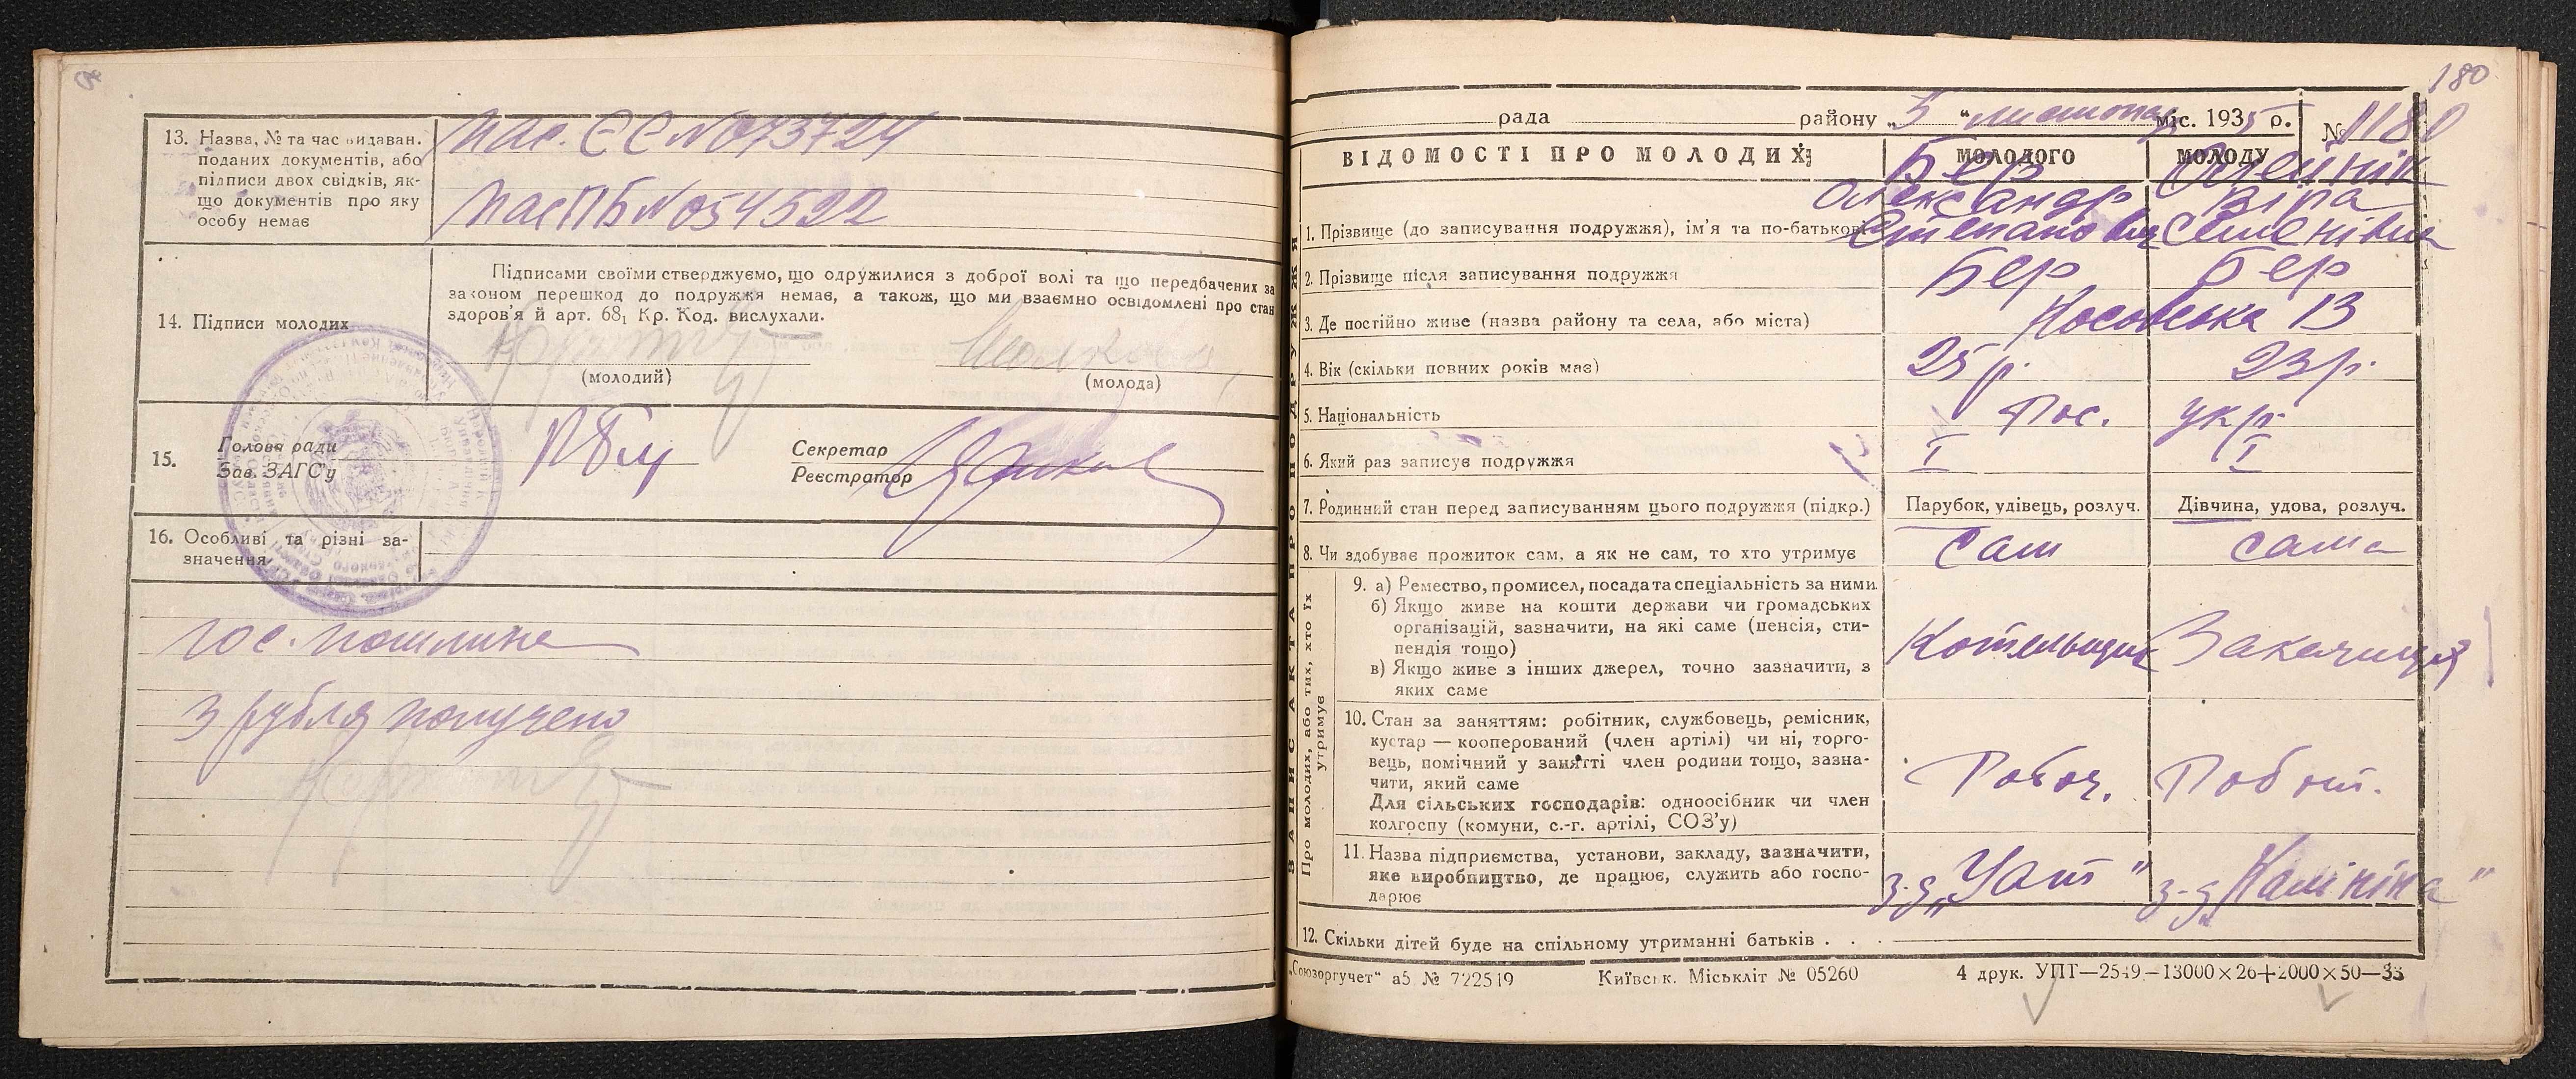 13. Назва, № та час видаван.
поданих документів, або
підписи двох свідків, як-
що документів про яку
особу немає
Пас. ЄС № 073724
Пас ПБ № 054522
14. Підписи молодих
Підписами своїми стверджуємо, що одружилися з доброї волі та що передбачених за
законом перешкод до подружжя немає, а також, що ми взаємно освідомлені про стан
здоров'я й арт. 68₁ Кр. Код. вислухали.
(молодий)
(молода)
15.
Голова ради
Зав. ЗАГС'у
Секретар
Реєстратор
16. Особливі та різні за-
значення
гос. пошлина
3 рубля получено
180
рада району „5“ листопад міс. 1935 р. № 1180
ВІДОМОСТІ ПРО МОЛОДИХ: МОЛОДОГО МОЛОДУ
ЗАПИС АКТА ПРО ПОДРУЖЖЯ
1. Прізвище (до записування подружжя), ім'я та по-батькові
Бер Олександр Степанович
Олейнік Віра Семенівна
2. Прізвище після записування подружжя Бер Бер
3. Де постійно живе (назва району та села, або міста) Носовська 13
4. Вік (скільки повних років має) 25 р. 23 р.
5. Національність Рос. укр.
6. Який раз записує подружжя I I
7. Родинний стан перед записуванням цього подружжя (підкр.) Парубок, удівець, розлуч. Дівчина, удова, розлуч.
8. Чи здобуває прожиток сам, а як не сам, то хто утримує Сам сама
Про молодих, або тих, хто їх утримує
9. а) Ремество, промисел, посада та спеціальність за ними
б) Якщо живе на кошти держави чи громадських
організацій, зазначити, на які саме (пенсія, сти-
пендія тощо)
в) Якщо живе з інших джерел, точно зазначити, з
яких саме
Котельщик
10. Стан за заняттям: робітник, службовець, ремісник,
кустар — кооперований (член артілі) чи ні, торго-
вець, помічний у занятті член родини тощо, зазна-
чити, який саме
Для сільських господарів: одноосібник чи член
колгоспу (комуни, с.-г. артілі, СОЗ'у)
Рабоч. Робіт.
11. Назва підприємства, установи, закладу, зазначити,
яке виробництво, де працює, служить або госпо-
дарює
з-д „Калініна“
12. Скільки дітей буде на спільному утриманні батьків . . .
„Союзоргучет“ а5 № 722519 Київськ. Міськліт № 05260 4 друк. УПТ—2549—13000×26+2000×50—33